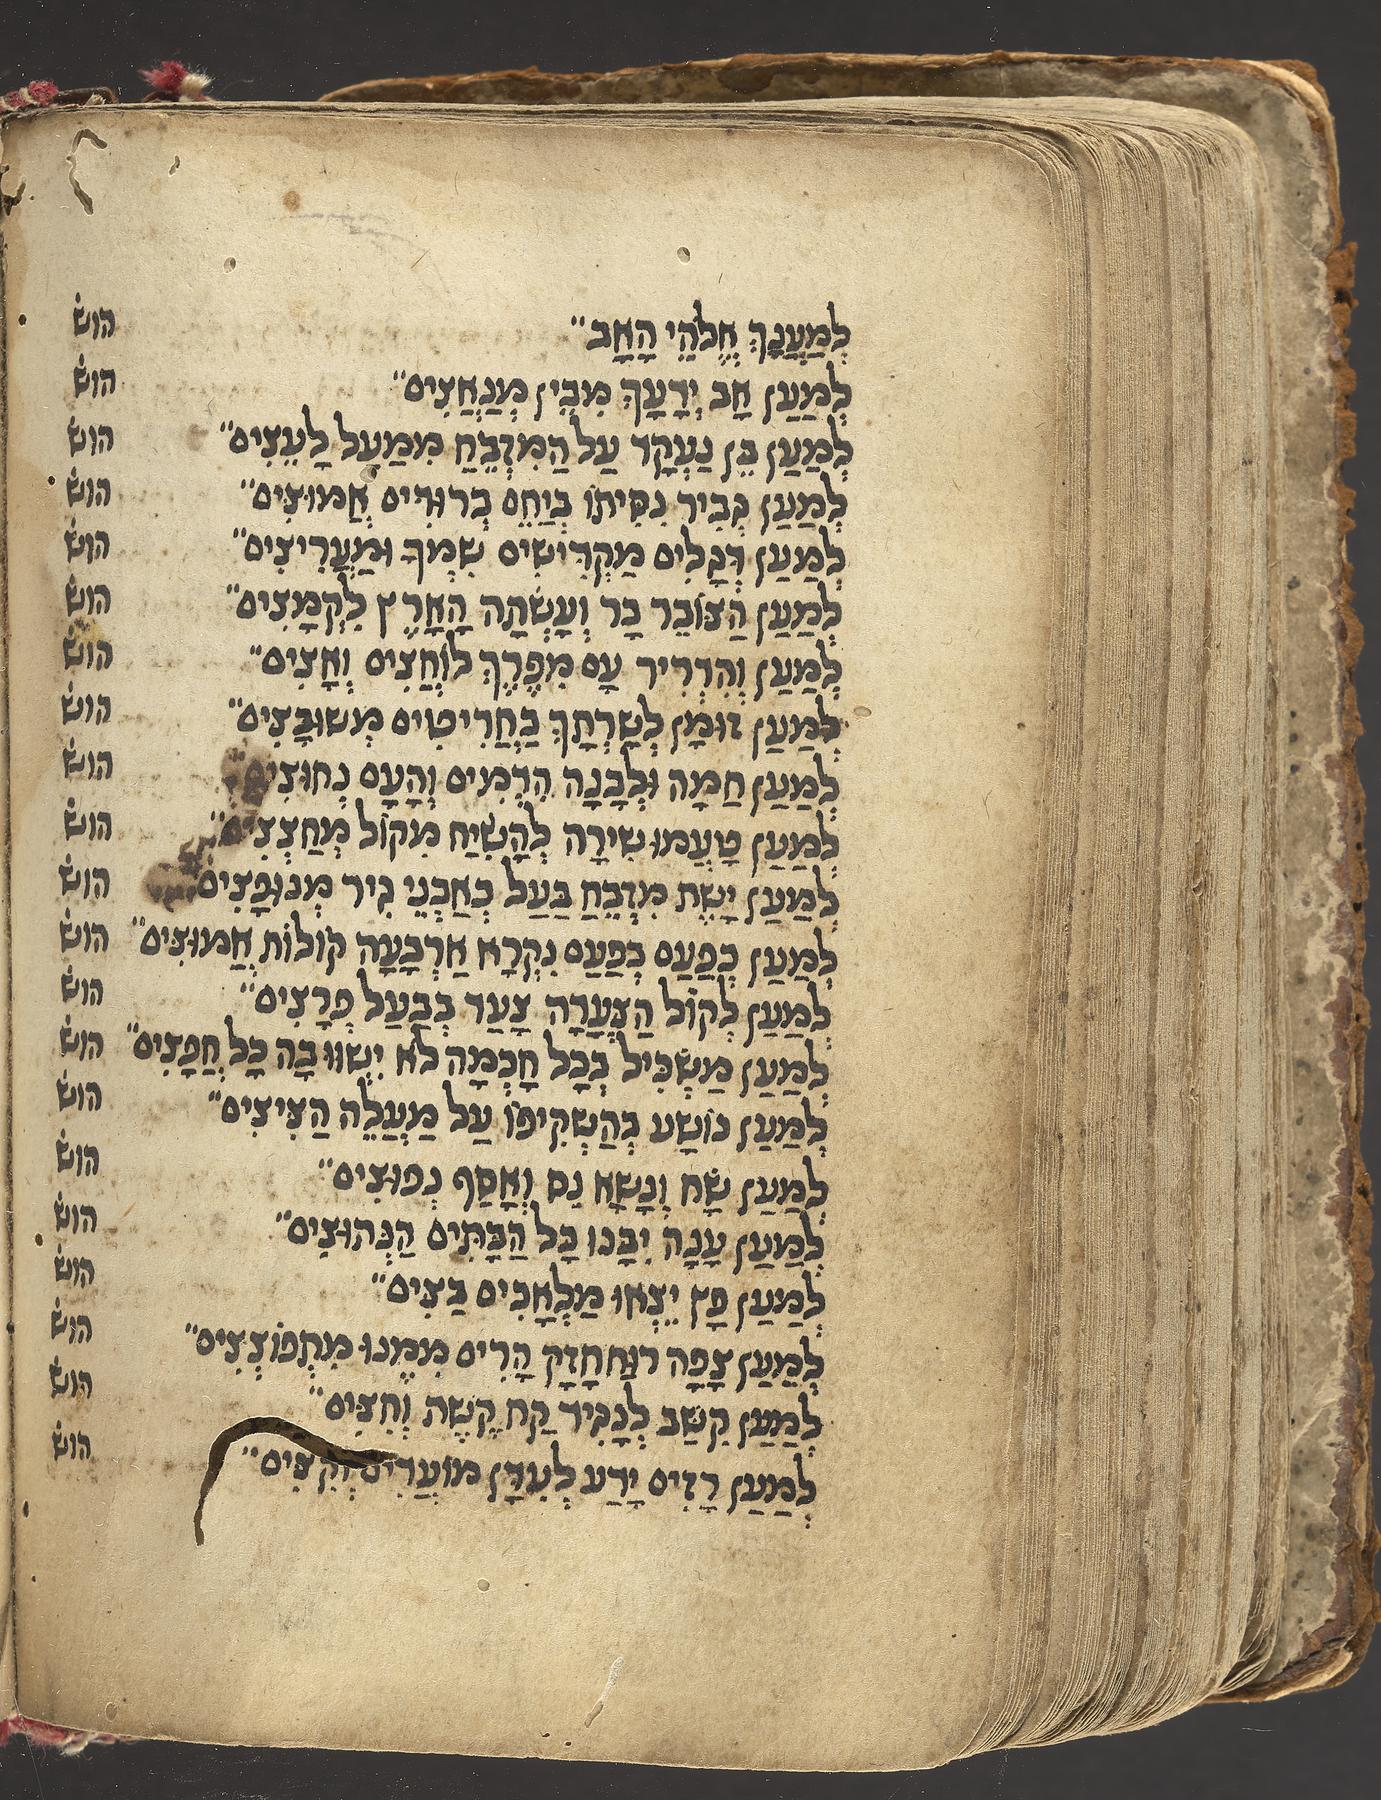 לְמַעֲנָךְ אֱלֹהֵי הָאָב" הוש
לְמַעַן אָב יְדָעָךְ מִבֵּין מְנַאֲצִים" הוש
לְמַעַן בֵּן נַעְקָד עַל הַמִּזְבֵּחַ מִמַּעַל לָעֵצִים" הוש
לְמַעַן גְּבִיר נִסִּיתוֹ בְּיַחֵם בְּרוּדִים אֲמוּצִים" הוש
לְמַעַן דְּגָלִים מַקְדִּישִׁים שִׁמְךָ וּמַעֲרִיצִים" הוש
לְמַעַן הַצּוֹבֵר בָּר וְעָשְׂתָה הָאָרֶץ לִקְמָצִים" הוש
לְמַעַן וְהִדְרִיר עָם מִפֶּרֶךְ לוֹחֲצִים וְאָצִים" הוש
לְמַעַן זוּמָּן לְשָׁרְתָךְ בַּחֲרִיטִים מְשׁוּבָּצִים" הוש
לְמַעַן חַמָּה וּלְבָנָה הִדְמִים וְהָעָם נְחוּצִים" הוש
לְמַעַן טָעֲמוּ שִׁירָה לְהָשִׂיחַ מִקּוֹל מְחַצְצִים" הוש
לְמַעַן יָשֶׁת מִזְבַּח בַּעַל כְּאַבְנֵי גִיר מְנוּפָּצִים" הוש
לְמַעַן כְּפַעַם בְּפַעַם נִקְרָא אַרְבָּעָה קוֹלוֹת אֲמוּצִים" הוש
לְמַעַן לְקוֹל הַצְּעָדָה צָעַד בְּבַעַל פְּרָצִים" הוש
לְמַעַן מַשְׂכִּיל בְּכָל חָכְמָה לֹא יִשְׁווּ בָהּ כָּל חֲפָצִים" הוש
לְמַעַן נוֹשָׁע בְּהַשְׁקִיפוֹ עַל מַעֲלֵה הַצִּיצִים" הוש
לְמַעַן שָׂח וְנָשָׂא נֵס וְאָסַף נְפוּצִים" הוש
לְמַעַן עָנָה יִבָּנוּ כָּל הַבָּתִּים הַנְּתוּצִים" הוש
לְמַעַן פָּץ יֵצְאוּ מַלְאָכִים בַּצִּים" הוש
לְמַעַן צָפָה רוּחַ חָזָק הָרִים מִמֶּנּוּ מִתְפּוֹצְצִים" הוש
לְמַעַן קִשַּׁב לְנָגִיד קַח קֶשֶׁת וְחִצִּים" הוש
לְמַעַן רָזִים יָדַע לְעִדָּן מוֹעֲדִים וְקִצִּים" הוש